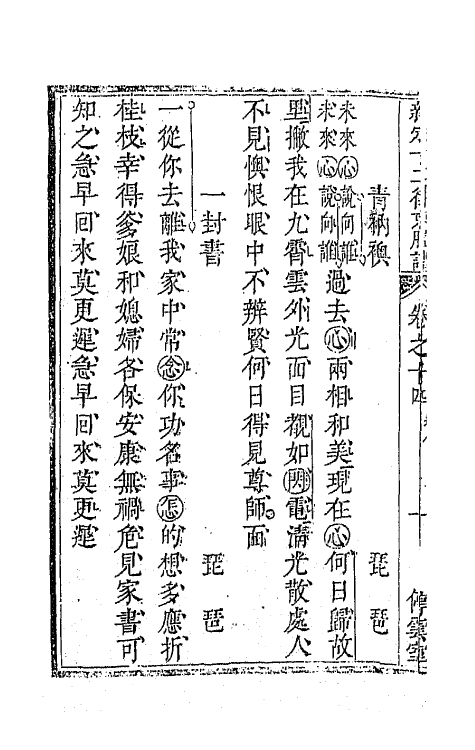 新定十二律京腔譜 卷之十四 停雲室
青衲襖 琵琶
未來心說向誰
未來心說向誰過去心兩相和美現在心何日歸故
里撇我在九霄雲外光面目覩如閃電清光散處人
不見懊恨眼中不辨賢何日得見尊師面
一封書 琵琶
一從你去離我家中常念你功名事怎的想多應折
桂枝幸得爹娘和媳婦各保安康無禍危見家書可
知之急早回來莫更遲急早回來莫更遲